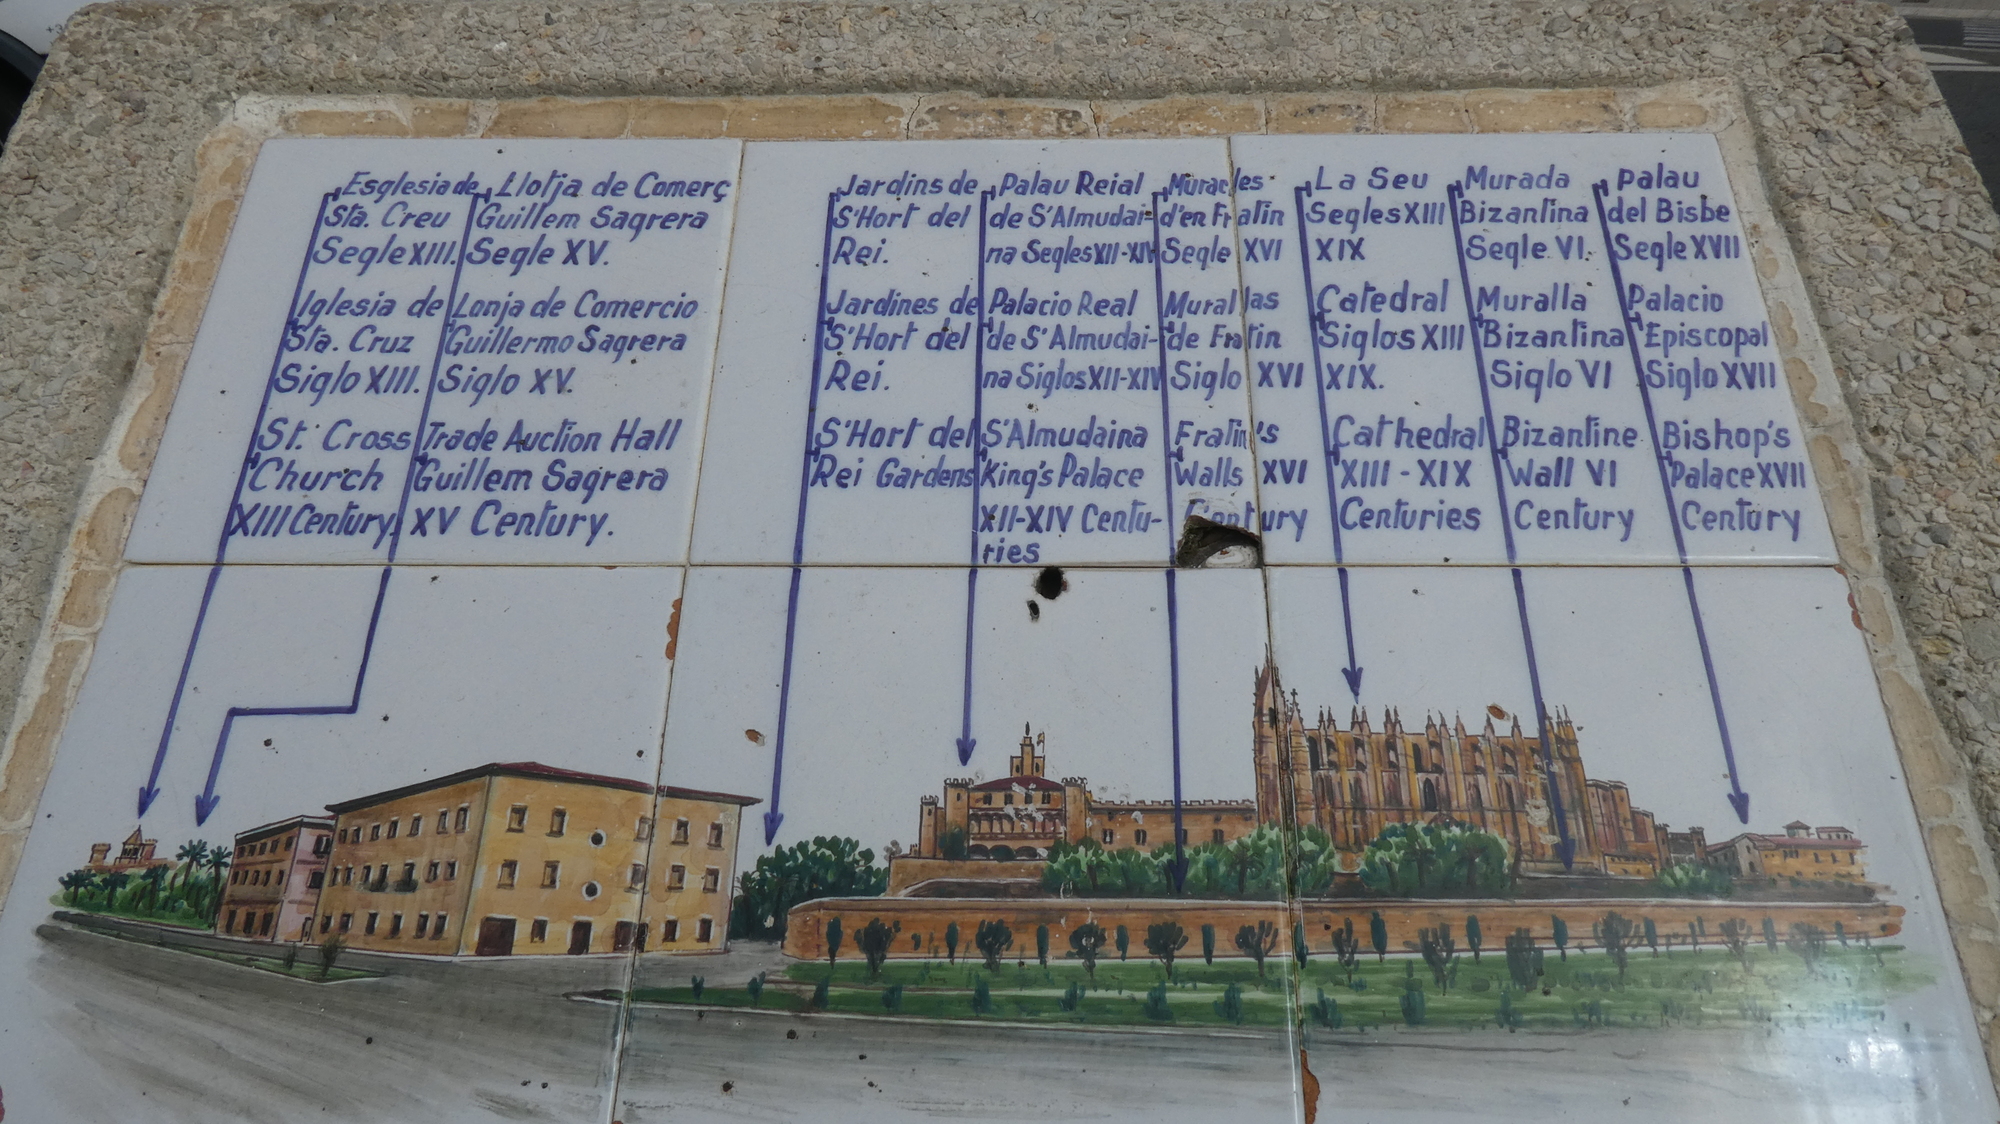 Esglesia de
Sta. Creu
Segle XIII.
Iglesia de
Sta. Cruz
Siglo XIII.
St. Cross
Church
XIII Century.
Llotja de Comerç
Guillem Sagrera
Segle XV.
Lonja de Comercio
Guillermo Sagrera
Siglo XV.
Trade Auction Hall
Guillem Sagrera
XV Century.
Jardins de
S'Hort del
Rei.
Jardines de
S'Hort del
Rei.
S'Hort del
Rei Gardens
Palau Reial
de S'Almudai-
na Segles XII-XIV
Palacio Real
de S'Almudai-
na Siglos XII-XIV
S'Almudaina
King's Palace
XII-XIV Centu-
ries
Murades
d'en Fratin
Segle XVI
Murallas
de Fratin
Siglo XVI
Fratin's
Walls XVI
Century
La Seu
Segles XIII
XIX
Catedral
Siglos XIII
XIX.
Cathedral
XIII - XIX
Centuries
Murada
Bizantina
Segle VI.
Muralla
Bizantina
Siglo VI
Bizantine
Wall VI
Century
Palau
del Bisbe
Segle XVII
Palacio
Episcopal
Siglo XVII
Bishop's
Palace XVII
Century